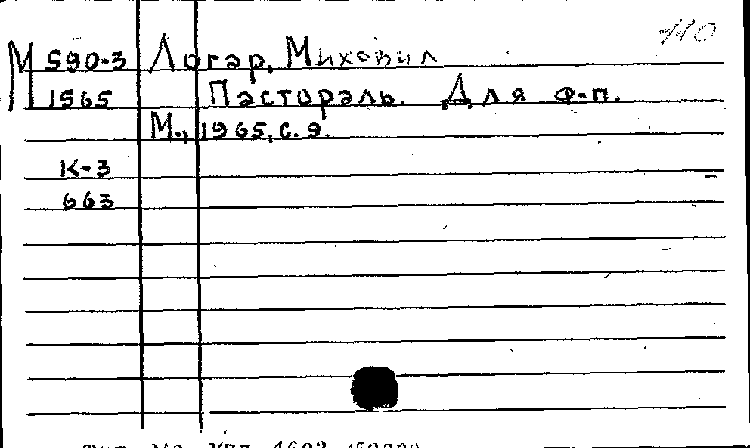 110
М 590-3 Логар, Миховил
1565 Пастораль. Для ф-п.
М., 1965, с. 9.
К-3
663